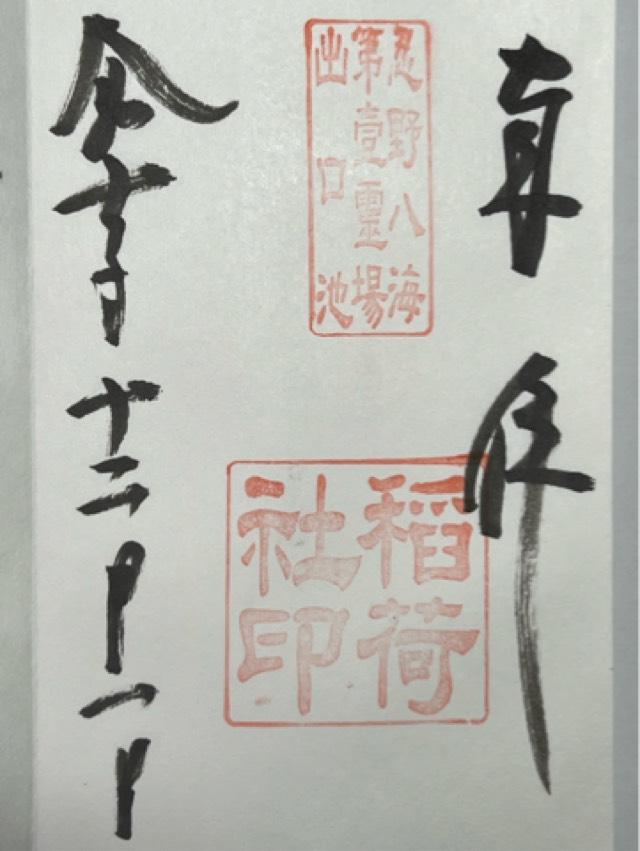 奉拝
忍野八海
第壹霊場
出口池
稲荷
社印
令和七年十二月一日